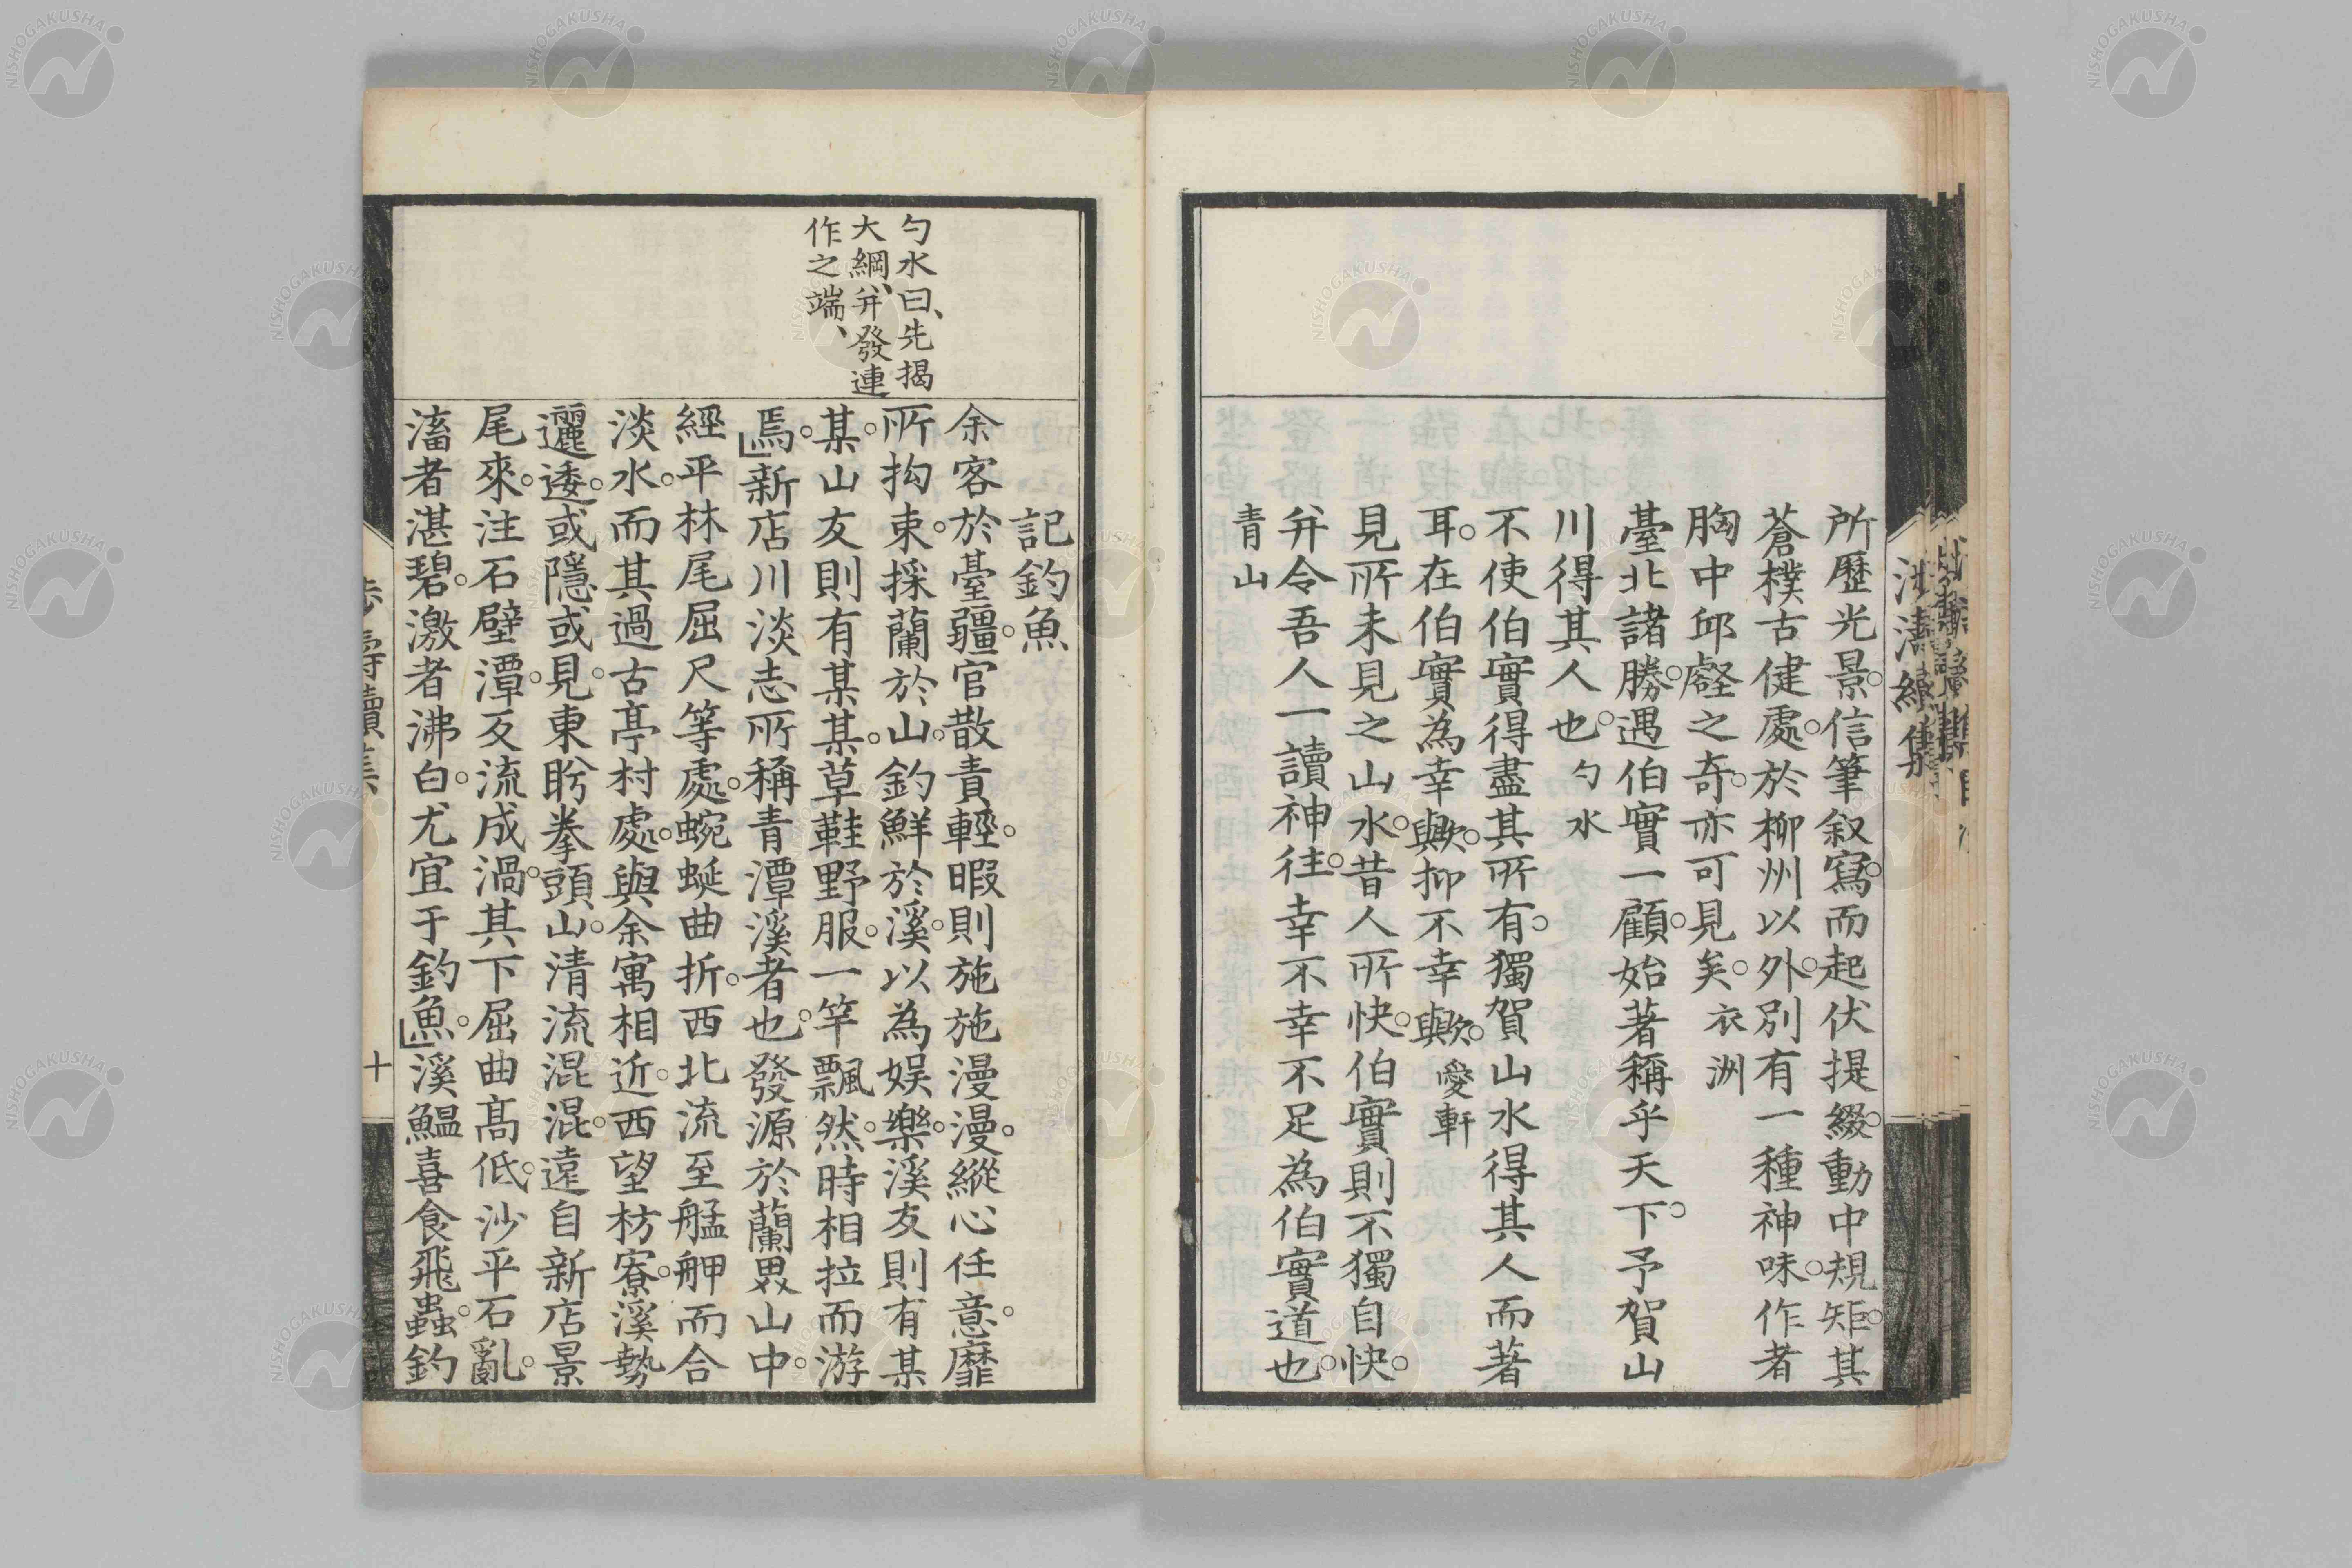 所歷光景。信筆叙寫。而起伏提綴。動中規矩。其
蒼樸古健處。於柳州以外。別有一種神味。作者
胸中邱壑之奇。亦可見矣。衣洲
臺北諸勝。遇伯實一顧。始著稱乎天下。予賀山
川得其人也。勺水
不使伯實得盡其所有。獨賀山水得其人而著
耳。在伯實為幸歟。抑不幸歟。愛軒
見所未見之山水。昔人所快。伯實則不獨自快。
幷令吾人一讀神往。幸不幸不足為伯實道也。
青山
勺水曰、先揭
大綱、幷發連
作之端、
記釣魚
余客於臺疆。官散責輕。暇則施施漫漫。縱心任意。靡
所拘束。採蘭於山。釣鮮於溪。以為娛樂。溪友則有某
某。山友則有某某。草鞋野服。一竿飄然。時相拉而游
焉。」新店川淡志所稱青潭溪者也。發源於蘭界山中。
經平林尾屈尺等處。蜿蜒曲折。西北流至艋舺而合
淡水。而其過古亭村處。與余寓相近。西望枋寮。溪勢
邐逶。或隱或見。東盻拳頭山。清流混混。遠自新店景
尾來。注石壁潭。反流成渦。其下屈曲高低。沙平石亂。
滀者湛碧。激者沸白。尤宜于釣魚。」溪鰛喜食飛蟲。釣
十
NISHOGAKUSHA